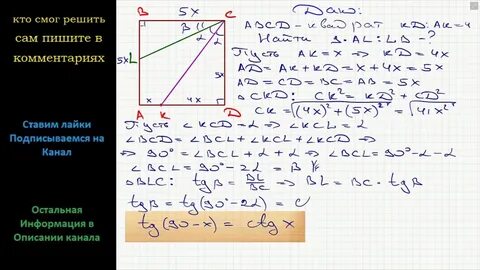 кто смог решить
сам пишите в
комментариях
Ставим лайки
Подписываемся на
Канал
Остальная
Информация в
Описании канала
B 5x C
β α α
5x L 5x
x 4x
A K D
Дано:
ABCD - квадрат KD:AK=4
Найти AL:LB-?
Пусть AK=x ⇒ KD=4x
AD=AK+KD=x+4x=5x
AD=CD=BC=AB=5x
△CKD: CK²=KD²+CD²
CK=√(4x)²+(5x)²=√41x²
Пусть ∠KCD=α ⇒ ∠KCL=α
∠BCD=∠BCL+∠KCL+∠KCD ⇒
⇒ 90°=∠BCL+α+α ⇒ ∠BCL=90°-α-α
∠BCL=90°-2α=β
△BLC: tgβ=BL/BC ⇒ BL=BC·tgβ
tgβ=tg(90°-2α)=c
tg(90-x)=ctgx